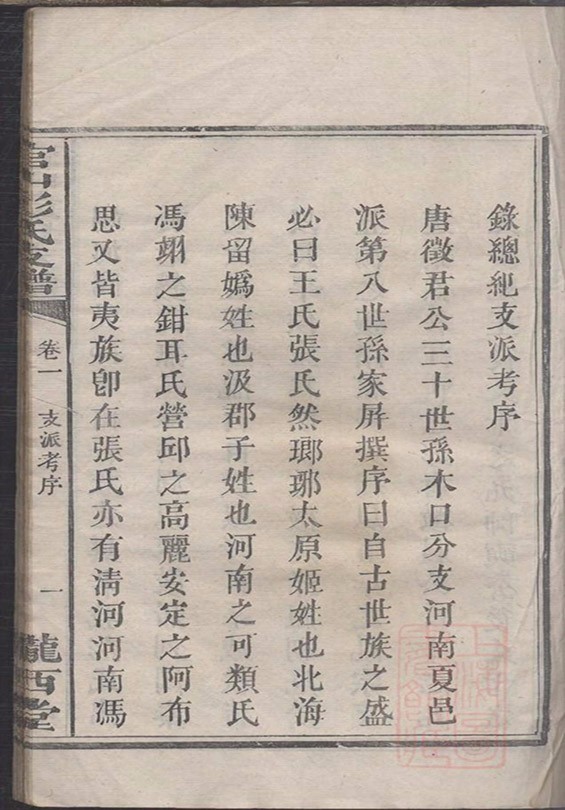 錄總紀支派考序
唐徵君公三十世孫木口分支河南夏邑
派第八世孫家屏撰序曰自古世族之盛
必曰王氏張氏然瑯琊太原姬姓也北海
陳留嬀姓也汲郡子姓也河南之可類氏
馮翊之鉗耳氏營邱之高麗安定之阿布
思又皆夷族卽在張氏亦有淸河河南馮
官山彭氏支譜
卷一
支派考序
一
隴西堂